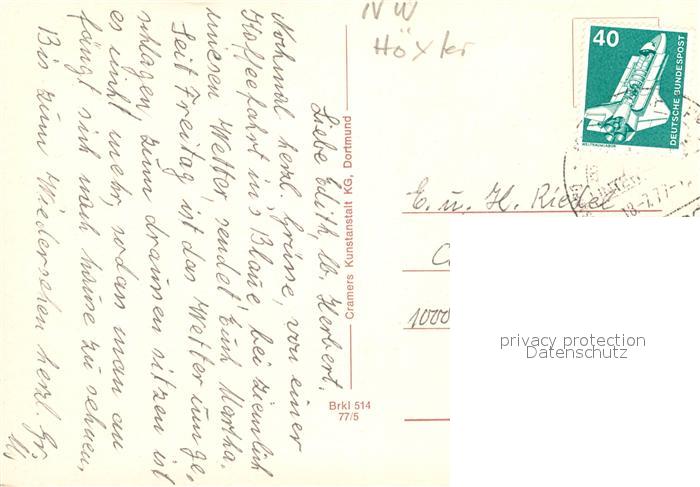 Liebe Edith, lb. Herbert,
Nochmal herzl. Grüsse, von einer
Kaffeefahrt ins Blaue, bei ziemlich
miesen Wetter, sendet Euch Martha.
Seit Freitag ist das Wetter umge,
schlagen, zum draussen sitzen ist
es nicht mehr, sodas man an
fängt sich nach hause zu sehnen,
Bis zum Wiedersehen herzl. Gr.
M.
Cramers Kunstanstalt KG, Dortmund
Brkl 514
77/5
NW
Höxter
40
DEUTSCHE BUNDESPOST
WELTRAUMLABOR
E. u. H. Riedel
1000
privacy protection
Datenschutz